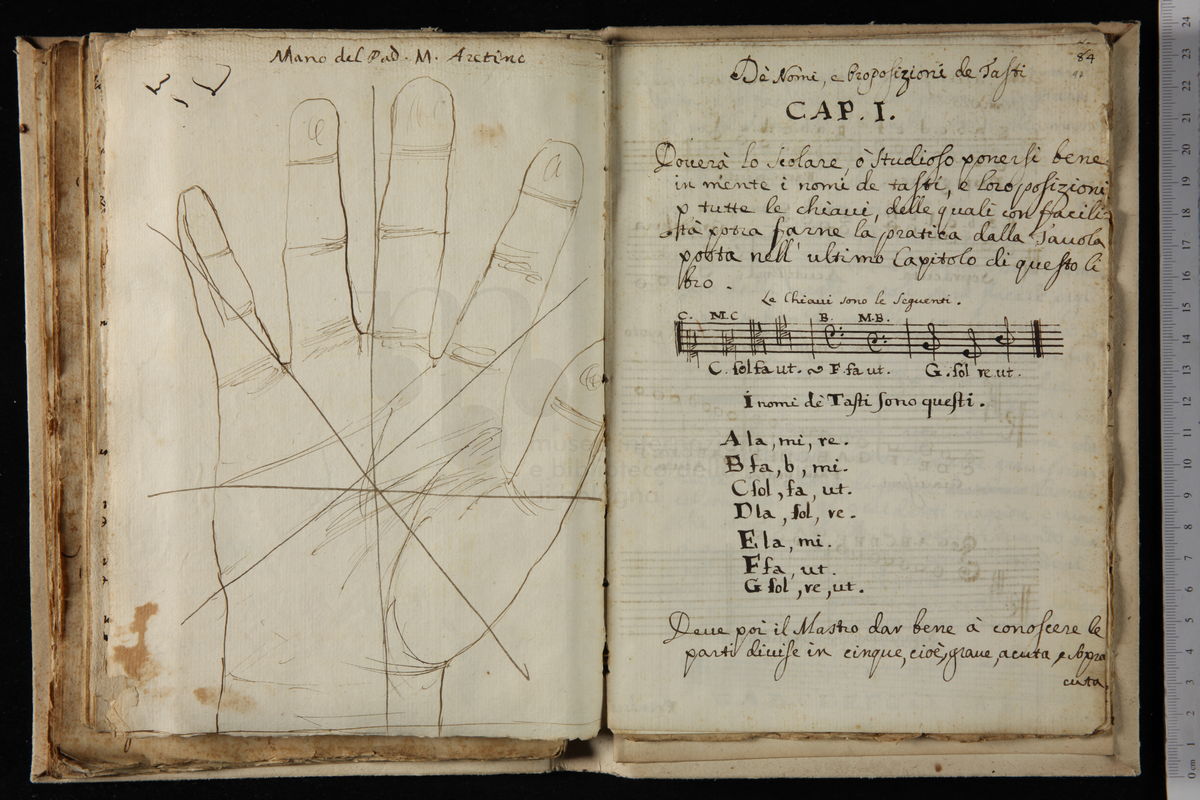 Mano del Pad. M. Aretino
84
Dè Nomi, e Proposizioni de Tasti
CAP. I.
Douerà lo Scolare, ò Studioso ponersi bene
in mente i nomi de tasti, e loro posizioni
p tutte le chiaui, delle quali con facili
tà potrà farne la pratica dalla Tauola
posta nell' ultimo Capitolo di questo li
bro.
Le Chiaui sono le Seguenti.
C. M.C B. M.B.
C. sol fa ut. F. fa ut. G. sol re ut.
I nomi dè Tasti sono questi.
A la, mi, re.
B fa, b, mi.
C sol, fa, ut.
D la, sol, re.
E la, mi.
F fa, ut.
G sol, re, ut.
Deue poi il Mastro dar bene à conoscere le
parti diuise in cinque, cioè, graue, acuta, e sopra
cuta.